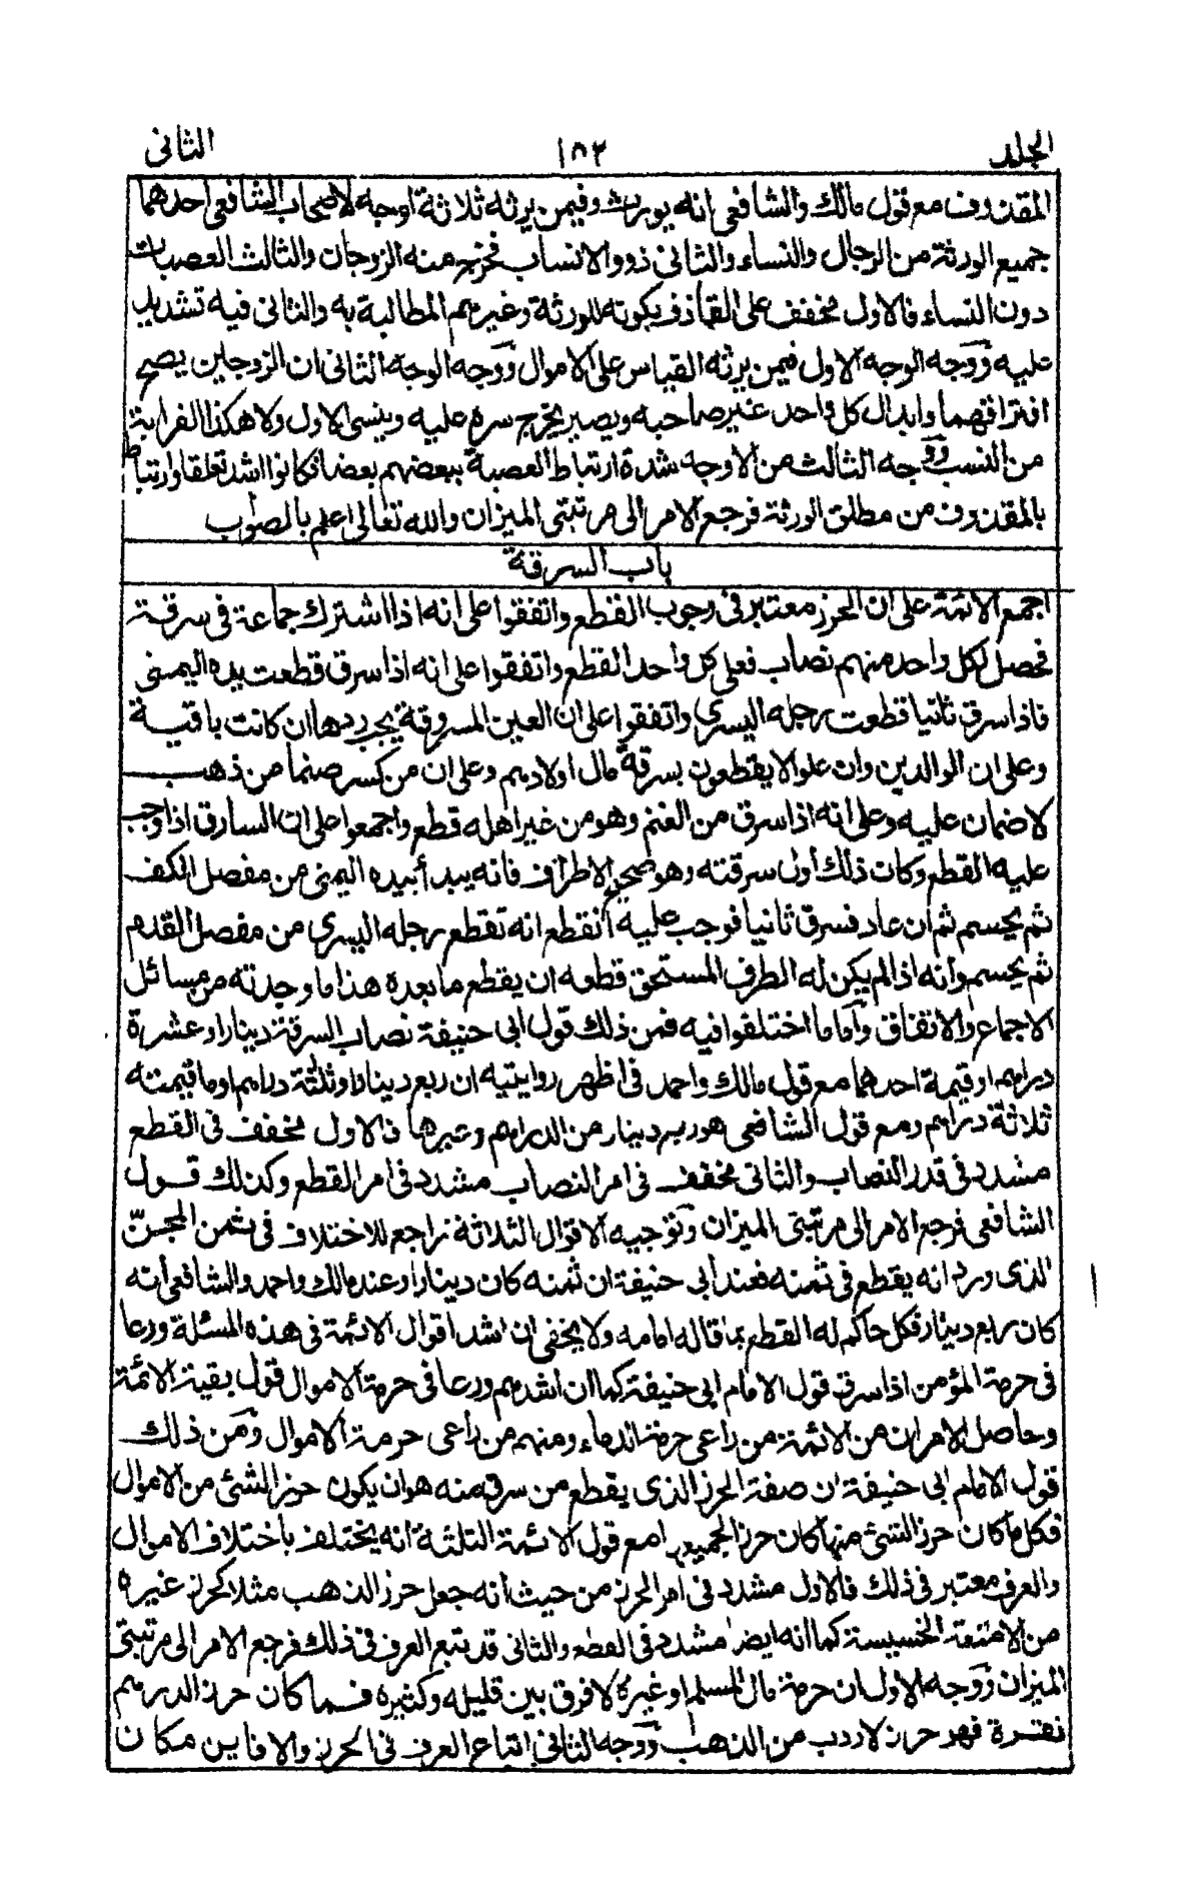 الجلد ١٥٢ الثانى
المقذوف مع قول مالك والشافعى انه يورث وفيمن يرثه ثلاثة اوجه لاصحاب الشافعى احدهما
جميع الورثة من الرجال والنساء والثانى ذوو الانساب فخرج منه الزوجان والثالث العصبات
دون النساء فالاول مخفف على القاذف بكونه للورثة وغيرهم المطالبة به والثانى فيه تشديد
عليه ووجه الوجه الاول فيمن يرثه القياس على الاموال ووجه الوجه الثانى ان الزوجين يصح
افتراقهما وابدال كل واحد غير صاحبه ويصير يخرج سره عليه وينسى الاول ولا هكذا القرابة
من النسب ووجه الثالث من الاوجه شدة ارتباط العصبة ببعضهم بعضا فكانوا اشد تعلقا وارتباطا
بالمقذوف من مطلق الورثة فرجع الامر الى مرتبتى الميزان والله تعالى اعلم بالصواب
باب السرقة
اجمع الائمة على ان الحرز معتبر فى وجوب القطع واتفقوا على انه اذا اشترك جماعة فى سرقة
فحصل لكل واحد منهم نصاب فعلى كل واحد القطع واتفقوا على انه اذا سرق قطعت يده اليمنى
فاذا سرق ثانيا قطعت رجله اليسرى واتفقوا على ان العين المسروقة يجب ردها ان كانت باقية
وعلى ان الوالدين وان علوا لا يقطعون بسرقة مال اولادهم وعلى ان من كسر صنما من ذهب
لا ضمان عليه وعلى انه اذا سرق من الغنم وهو من غير اهله قطع واجمعوا على ان السارق اذا وجب
عليه القطع وكان ذلك اول سرقته وهو صحيح الاطراف فانه يبدأ بيده اليمنى من مفصل الكف
ثم يحسم ثم ان عاد فسرق ثانيا فوجب عليه القطع انه تقطع رجله اليسرى من مفصل القدم
ثم يحسم وانه اذا لم يكن له الطرف المستحق قطعه ان يقطع ما بعده هذا ما وجدته من مسائل
الاجماع والاتفاق وأما ما اختلفوا فيه فمن ذلك قول ابى حنيفة نصاب السرقة دينار او عشرة
دراهم او قيمة احدهما مع قول مالك واحمد فى اظهر روايتيه ان ربع دينار او ثلثة دراهم او ما قيمته
ثلاثة دراهم ومع قول الشافعى هو ربع دينار من الدراهم وغيرها فالاول مخفف فى القطع
مشدد فى قدر النصاب والثانى مخفف فى امر النصاب مشدد فى امر القطع وكذلك قول
الشافعى فرجع الامر الى مرتبتى الميزان وتوجيه الاقوال الثلاثة راجع للاختلاف فى ثمن المجنّ
الذى ورد انه يقطع فى ثمنه فعند أبى حنيفة ان ثمنه كان دينارا وعند مالك واحمد والشافعى أنه
كان ربع دينار فكل حاكم له القطع بما قاله امامه ولا يخفى ان اشد اقوال الائمة فى هذه المسئلة ورعا
فى حرمة المؤمن اذا سرق قول الامام ابى حنيفة كما ان اشدهم ورعا فى حرمة الاموال قول بقية الائمة
وحاصل الامر ان من الائمة من راعى حرمة الدماء ومنهم من راعى حرمة الاموال ومن ذلك
قول الامام ابى حنيفة ان صفة الحرز الذى يقطع من سرق منه هو ان يكون حرز الشئ من الاموال
فكل ما كان حرز الشئ منها كان حرز الجميعها مع قول الائمة الثلثة انه يختلف باختلاف الاموال
والعرف معتبر فى ذلك فالاول مشدد فى امر الحرز من حيث أنه جعل حرز الذهب مثلا كحرز غيره
من الامتعة الخسيسة كما انه ايضا مشدد فى القطع والثانى قد يتبع العرف فى ذلك فرجع الامر الى مرتبتى
الميزان ووجه الاول ان حرمة مال المسلم او غيره لا فرق بين قليله وكثيره فما كان حرز الدرهم
نقرة فهو حرز لاردب من الذهب ووجه الثانى اتباع العرف فى الحرز والا فاين مكان